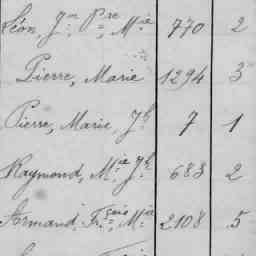 Léon, Jn Pre Mie 770 2
Pierre, Marie 1294 3
Pierre, Marie, Jh 7 1
Raymond, Mie Jh 683 2
Armand, Fçois, Mie 2108 5